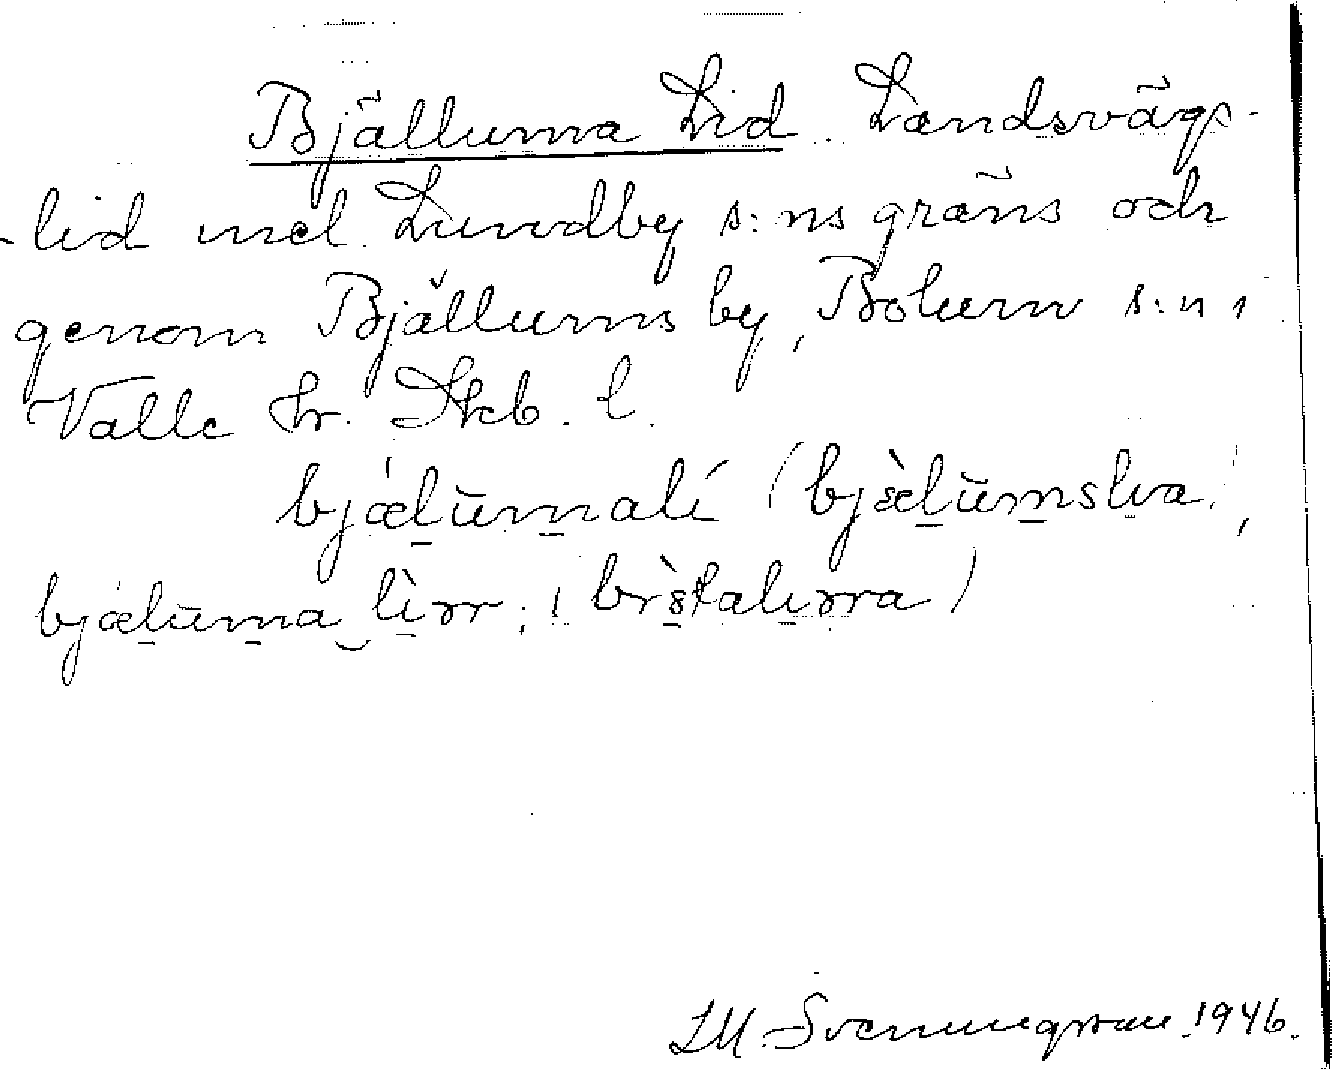 Bjälluma Lid. Landsvägs-
lid mel. Lundby s:ns gräns och
genom Bjällums by, Bolum s:n i
Valle hr. Skb. l.
bjǽlūmalí (bjæ̀lūmslia,
bjælūma lìrr, i brǽtalirra)
LM. Svenungsson 1946.